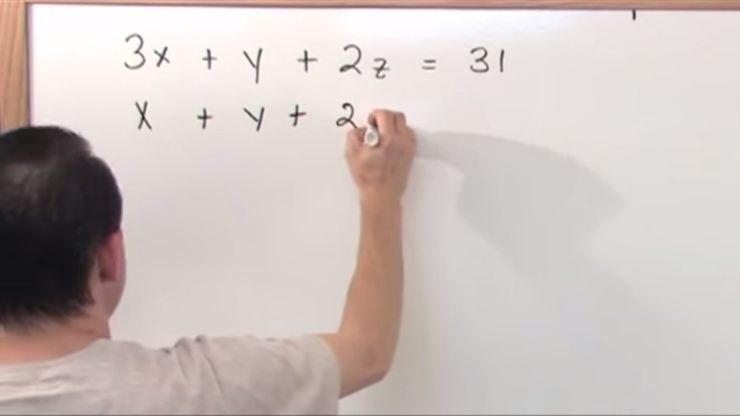 3x + y + 2z = 31
x + y + 2